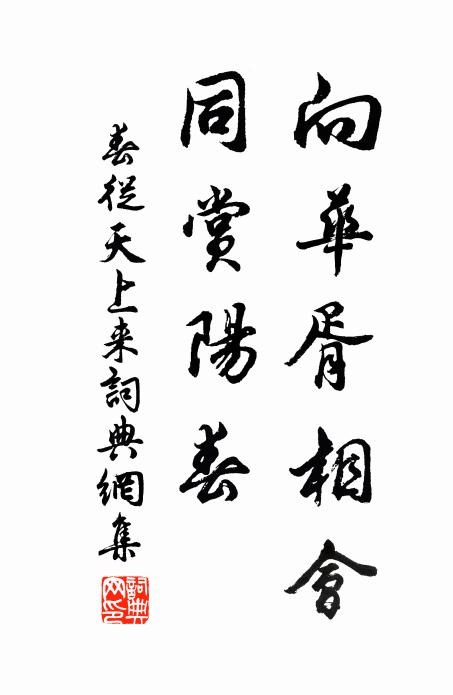 向華胥相會
同賞陽春
春從天上来詞典網集
詞典網印